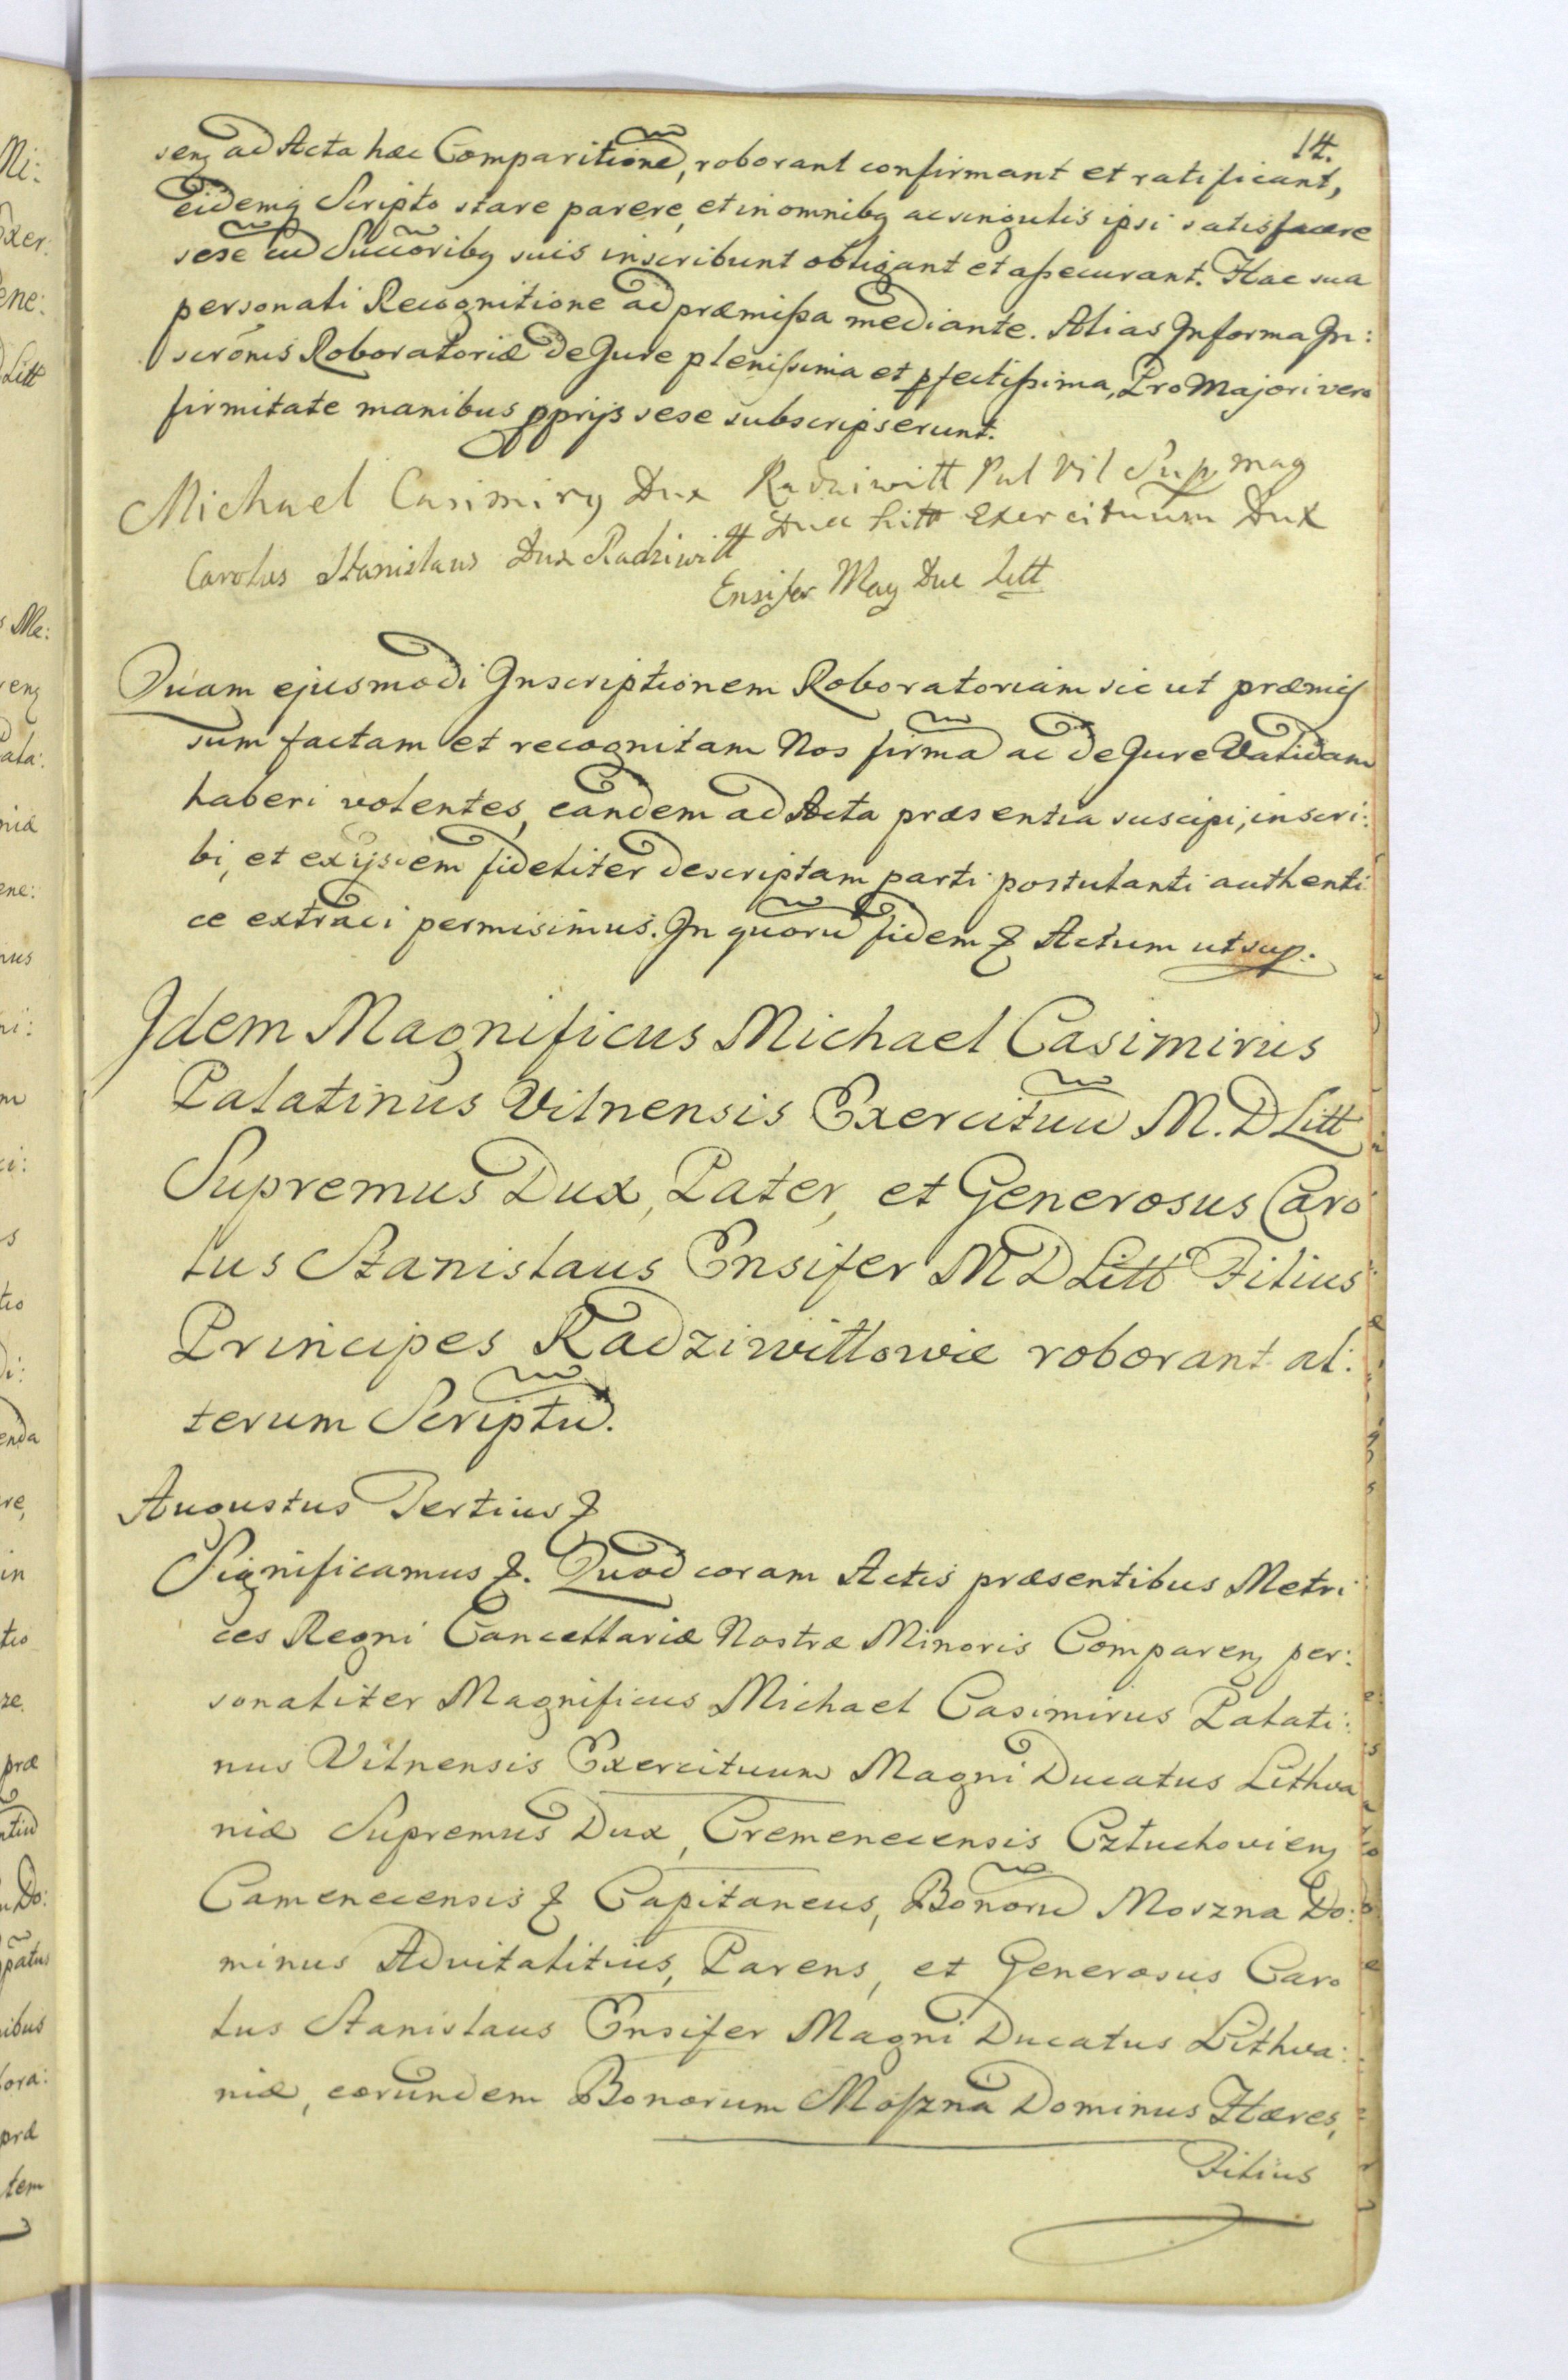 14.
senʒ ad Acta hæc Comparitione, roborant confirmant et ratificant,
eidemq Scripto stare parere, et in omnibq ac singulis ipsi satisfacere
sese cũ Succoribq suis inscribunt obligant et assecurant. Hac sua
personali Recognitione ad præmissa mediante. Alias In forma In:
scronis Roboratoriæ de Jure plenissima et pfectissima, Pro Majori vero
firmitate manibus pprijs sese subscripserunt.
Michael Casimirq Dux Radziwiłł Pal Vil Sup mag
Duc Litt Exercituum Dux
Carolus Stanislaus Dux Radziwiłł
Ensifer Mag Duc Litt
Quam ejusmodi Inscriptionem Roboratoriam sic ut præmis
sum factam et recognitam Nos firmã ac de Jure Validam
haberi volentes, eandem ad Acta præsentia suscipi, inscri:
bi, et ex ijsdem fideliter descriptam parti postulanti authenti
ce extradi permisimus. In quorũ fidem & Actum ut sup.
Idem Magnificus Michael Casimirus
Palatinus Vilnensis Exercituũ M. D Litt
Supremus Dux, Pater, et Generosus Caro
lus Stanislaus Ensifer M D Litt Filius
Principes Radziwiłłowie roborant al:
terum Scriptũ.
Augustus Tertius &
Significamus &. Quod coram Actis præsentibus Metri
ces Regni Cancellariæ Nostræ Minoris Comparenʒ per:
sonaliter Magnificus Michael Casimirus Palati:
nus Vilnensis Exercituum Magni Ducatus Lithva
niæ Supremus Dux, Cremenecensis Człuchovienʒ
Camenecensis & Capitaneus, Bonorũ Moszna Do:
minus Advitalitius, Parens, et Generosus Caro
lus Stanislaus Ensifer Magni Ducatus Lithva:
niæ, eorundem Bonorum Moszna Dominus Hæres,
Filius